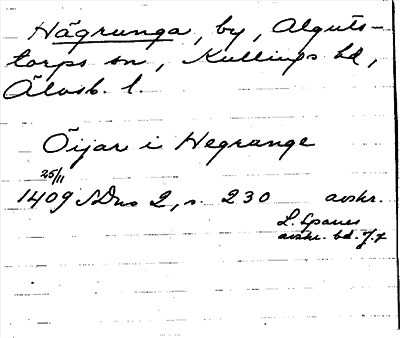 Hägrunga, by, Alguts-
torps sn, Kullings hd,
Älvsb. l.
Öijar i Hegrange
25/11
1409 SDns 2, s. 230 avskr.
L. Spaues
avskr. bd. 7.